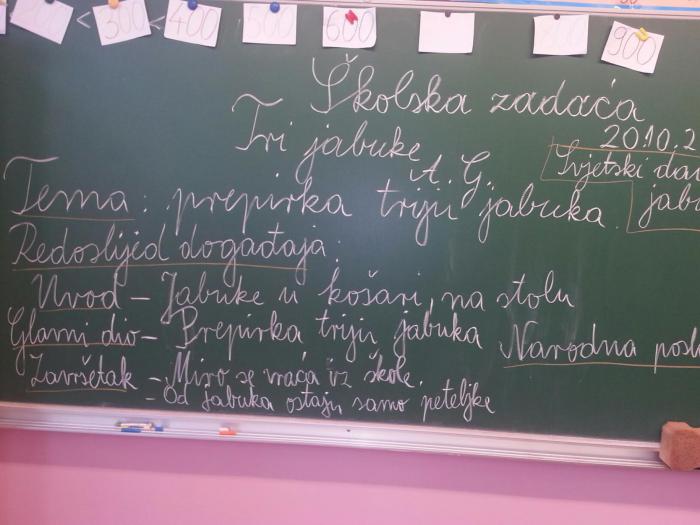 < 300 < 400 500 600 900
Školska zadaća
20.10.2
Tri jabuke
A. G.
Svjetski dan
jabu
Tema: prepirka triju jabuka.
Redoslijed događaja:
Uvod – Jabuke u košari, na stolu
Glavni dio – Prepirka triju jabuka
Narodna posl
Završetak – Miro se vraća iz škole.
– Od jabuka ostaju samo peteljke